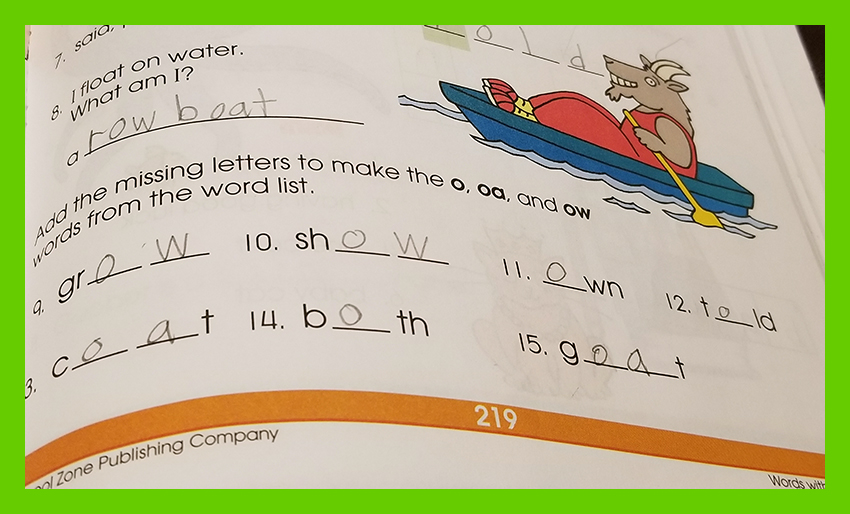 7. said,
o l d
8. I float on water.
What am I?
a row boat
Add the missing letters to make the o, oa, and ow
words from the word list.
9. gro w 10. sho w 11. own 12. told
3. co at 14. both 15. goat
219
ol Zone Publishing Company
Words with